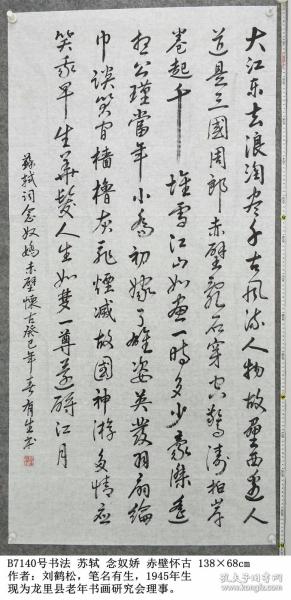 大江东去浪淘尽千古风流人物故垒西边人
道是三國周郎赤壁亂石穿空驚濤拍岸
卷起千堆雪江山如画一時多少豪傑遥
想公瑾當年小喬初嫁了雄姿英發羽扇綸
巾談笑间檣櫓灰飛煙滅故國神游多情應
笑我早生華髮人生如夢一尊還酹江月
蘇軾词念奴嬌赤壁懷古癸巳年 有生书
B7140号书法 苏轼 念奴娇 赤壁怀古 138×68cm
作者: 刘鹤松, 笔名有生, 1945年生
现为龙里县老年书画研究会理事。